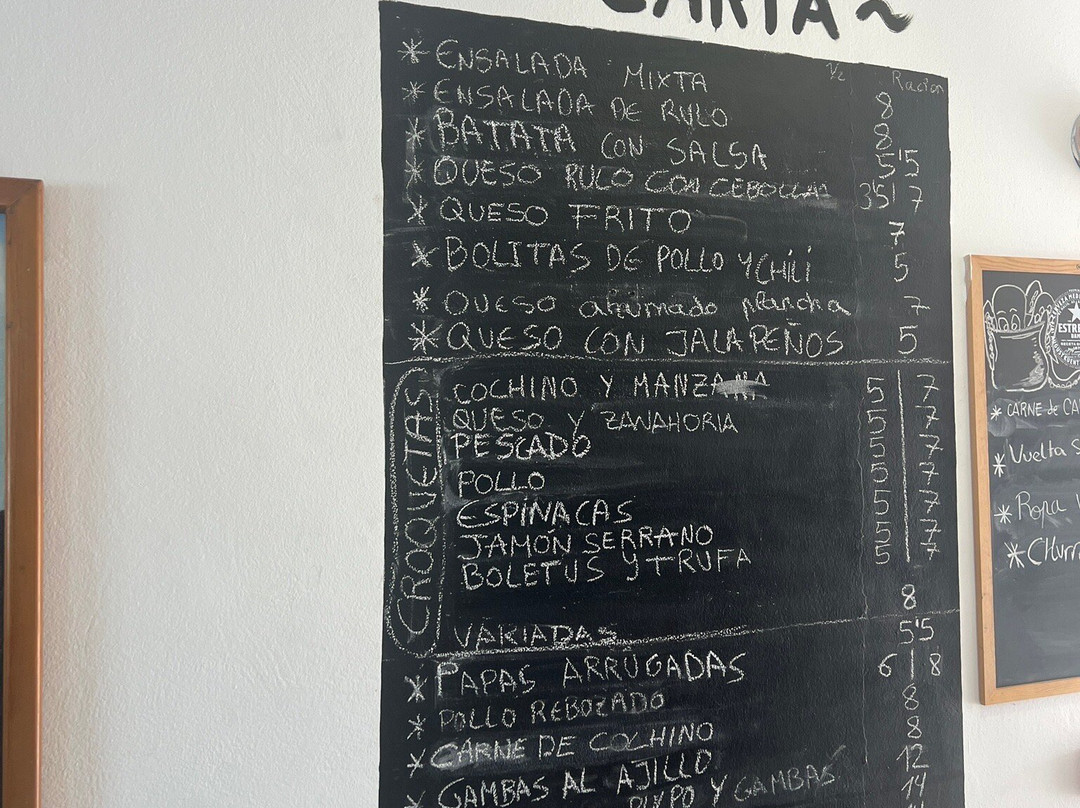 CARTA ~
1/2 Racion
* ENSALADA MIXTA 8
* ENSALADA DE RULO 8
* BATATA CON SALSA 5'5
* QUESO RULO CON CEBOLLA 3'5 / 7
* QUESO FRITO 7
* BOLITAS DE POLLO Y CHILI 5
* QUESO ahumado plancha 7
* QUESO CON JALAPEÑOS 5
CROQUETAS
COCHINO Y MANZANA 5 | 7
QUESO Y ZANAHORIA 5 | 7
PESCADO 5 | 7
POLLO 5 | 7
ESPINACAS 5 | 7
JAMÓN SERRANO 5 | 7
BOLETUS Y TRUFA 5 | 7
VARIADAS 8
* PAPAS ARRUGADAS 5'5
* POLLO REBOZADO 6 | 8
* CARNE DE COCHINO 8
* GAMBAS AL AJILLO 8
PULPO Y GAMBAS 12
14
ESTRE
* CARNE de CA
* Vuelta S
* Ropa V
* Churr